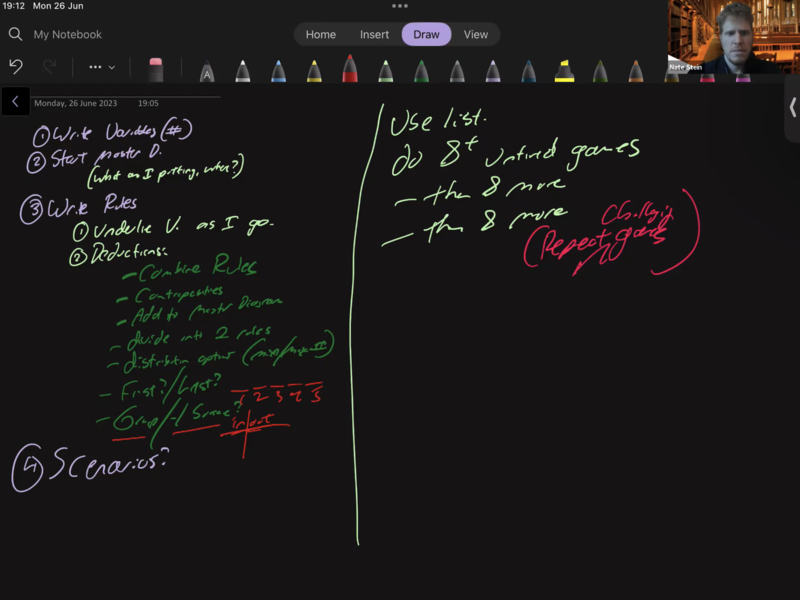 19:12 Mon 26 Jun
My Notebook
Home Insert Draw View
A
Nate Stein
Monday, 26 June 2023 19:05
① Write Variables (#)
② Start Master D.
(What am I putting, where?)
③ Write Rules
① Underline V. as I go.
② Deductions:
- Combine Rules
- Contrapositives
- Add to Master Diagram
- divide into 2 rules
- distribution options (min/max #)
- First?/Last?
1 2 3 4 5
- Group/-/ Space?
in/out
④ Scenarios?
Use list.
do 8+ untimed games
- then 8 more
- then 8 more
(Repeat Challenging games)